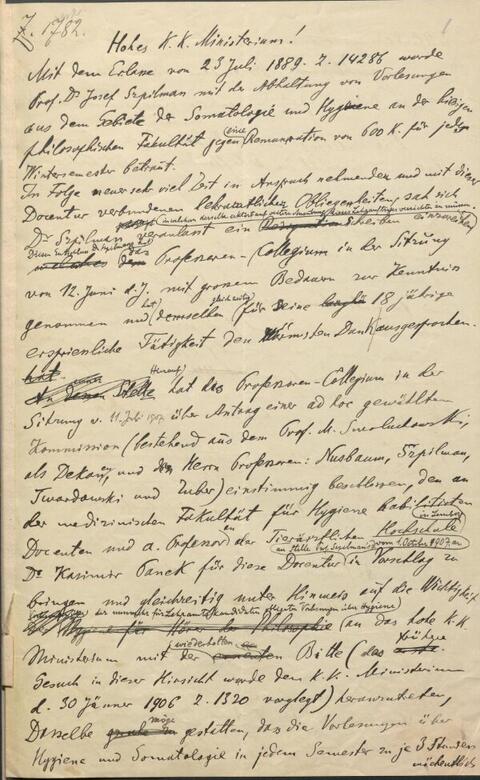 Z. 1782.
1
Hohes K.K. Ministerium!
Mit dem Erlasse von 23 Juli 1889. Z. 14286 wurde
Prof. Dr Josef Szpilman mit der Abhaltung von Vorlesungen
aus dem Gebiete der Somatologie und Hygiene an der hiesigen
philosophischen Fakultät gegen eine Remuneration von 600 K. für jedes
Wintersemester betraut.
In Folge neuer sehr viel Zeit in Anspruch nehmenden und mit dieser
Docentur verbundenen Obliegenheiten hat sich
Dr Szpilman veranlasst ein Schreiben einzureichen
das Professoren-Collegium in der Sitzung
von 12. Juni d.J. mit grossem Bedauern zur Kenntnis
genommen und demselben gleichzeitig für seine 18 jährige
erspriessliche Tätigkeit den wärmsten Dank ausgesprochen.
Hierauf
hat das Professoren-Collegium in der
Sitzung v. 11. Juli 1907 über Antrag einer ad hoc gewählten
Kommission (bestehend aus dem Prof. M. Smoluchowski,
als Dekan, und den Herrn Professoren: Nusbaum, Szpilman,
Twardowski und Zuber) einstimmig beschlossen, den an
der medizinischen Fakultät für Hygiene habilitirten
in Lemberg
Docenten und a. Professor an der Tierärztlichen Hochschule
an Stelle Prof. Szpilmans vom 1. October 1907 an
Dr Kasimir Panek für diese Docentur in Vorschlag zu
bringen und gleichzeitig unter Hinweis auf die Wichtigkeit
der Vorlesungen über Hygiene
Hygiene für Hörer der Philosophie (an das hohe K.K.
wiederholten
Ministerium mit der Bitte (das frühere
Gesuch in dieser Hinsicht wurde dem K.K. Ministerium
d. 30 Jänner 1906 Z. 1320 vorgelegt) heranzutreten,
Dasselbe möge gestatten, das die Vorlesungen über
Hygiene und Somatologie in jedem Semester zu je 3 Stunden
wöchentlich